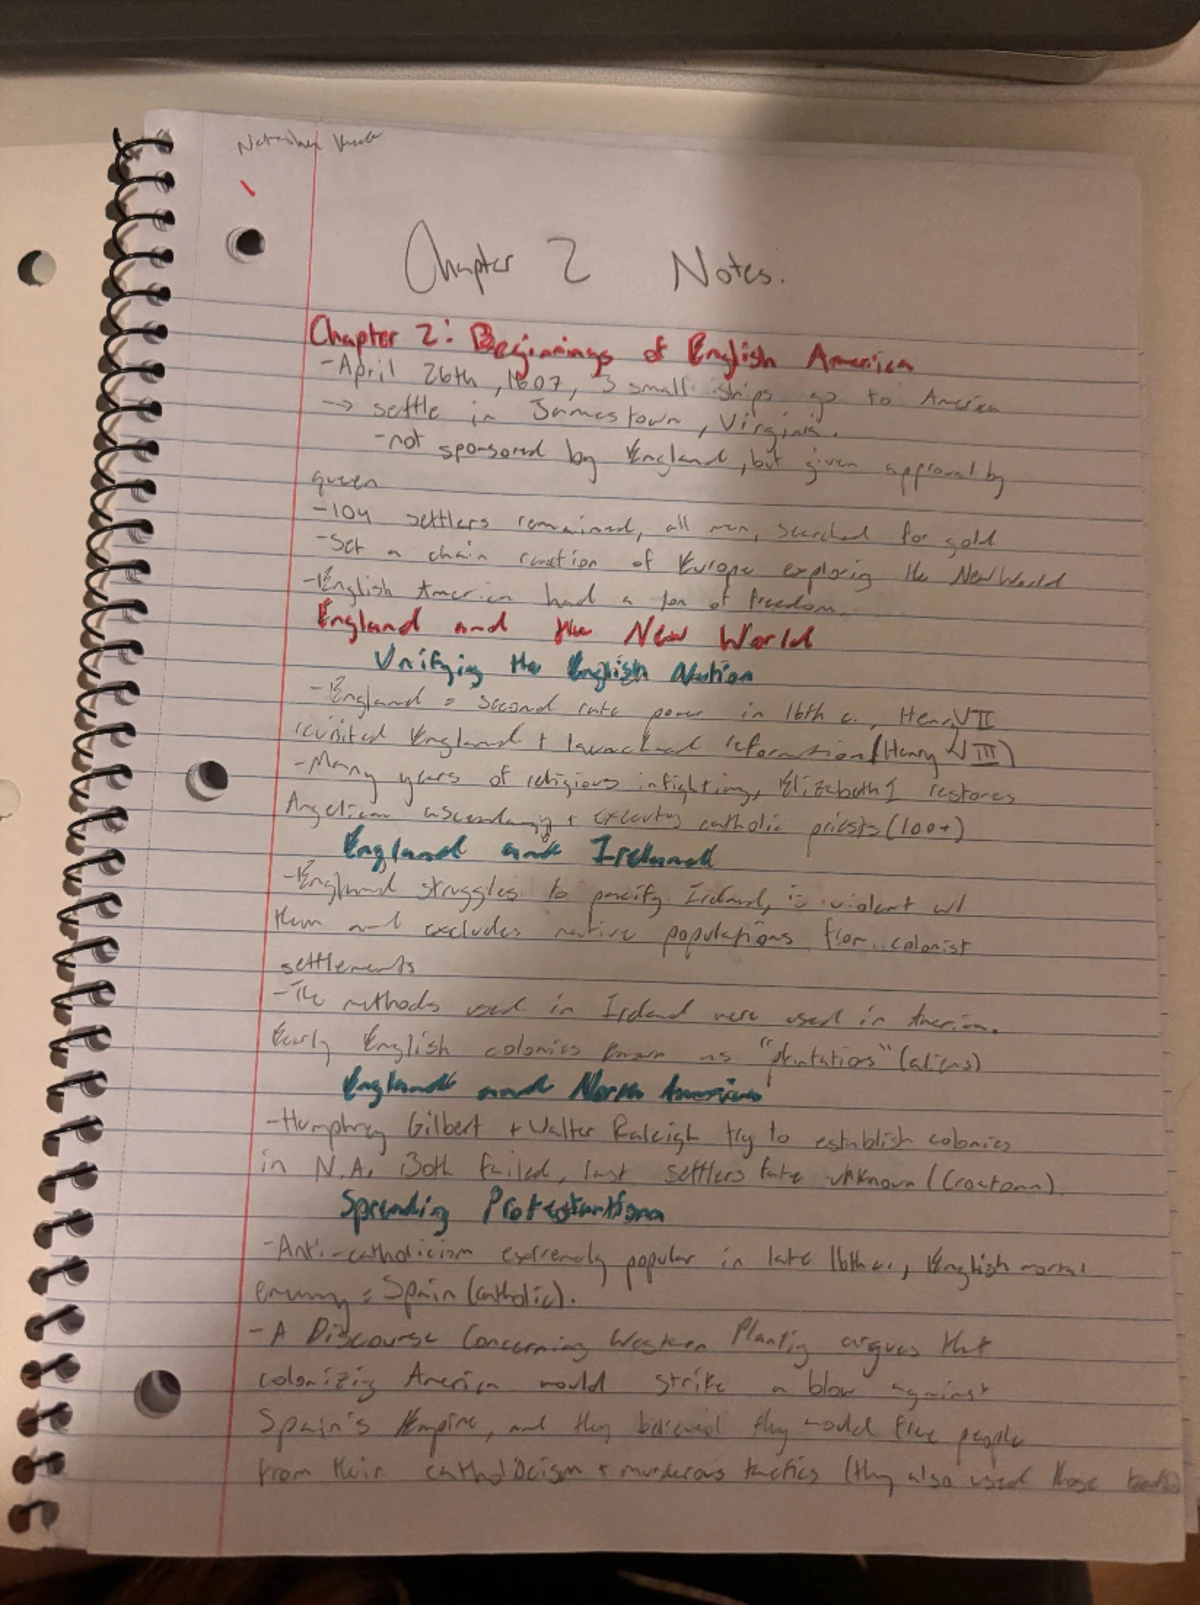 Chapter 2 Notes.
Chapter 2: Beginnings of English America
-April 26th, 1607, 3 small ships go to America
→ settle in Jamestown, Virginia.
-not sponsored by England, but given approval by
queen
-104 settlers remained, all men, searched for gold
-Set a chain reaction of Europe exploring the New World
-English America had a ton of freedom.
England and the New World
Unifying the English Nation
-England = second rate power in 16th c., Henry VII
reunited England + launched reformation (Henry VIII)
-Many years of religious infighting, Elizabeth I restores
Anglican ascendancy + executes catholic priests (100+)
England and Ireland
-England struggles to pacify Ireland, is violent w/
them and excludes native populations from colonist
settlements
-The methods used in Ireland were used in America.
Early English colonies known as "plantations" (aliens)
England and North America
-Humphrey Gilbert + Walter Raleigh try to establish colonies
in N.A. Both failed, last settlers fate unknown (Croatoan).
Spreading Protestantism
-Anti-catholicism extremely popular in late 16th c., English mortal
enemy = Spain (catholic).
-A Discourse Concerning Western Planting argues that
colonizing America would strike a blow against
Spain's Empire, and they believed they would free people
from their catholicism + murderous tactics (they also used those